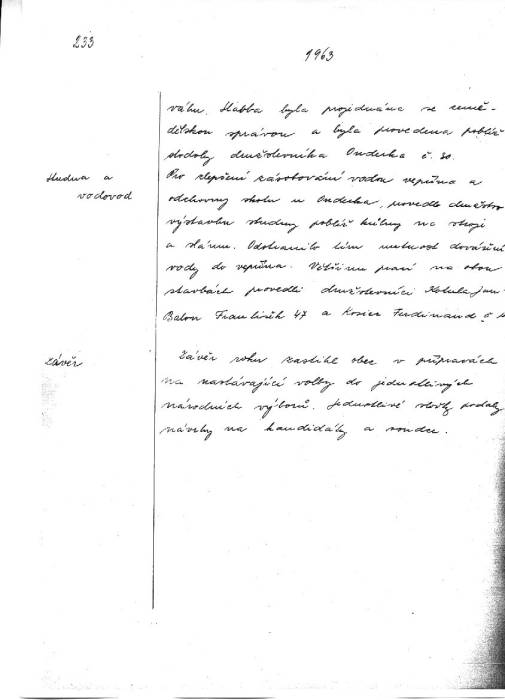 233
1963
váhu. Stavba byla projednána se země-
dělskou správou a byla provedena poblíž
stodoly družstevníka Onderka č. 30.
Studna a
vodovod
Pro zlepšení zásobování vodou vepřína a
odchovny skotu u Onderka, provedlo družstvo
výstavbu studny poblíž kůlny na stroji
a slámu. Odstranilo tím nutnost dovážení
vody do vepřína. Většinu prací na obou
stavbách provedli družstevníci Kotula Jan
Balon František 47 a Kosiec Ferdinand č
Závěr
Závěr roku zastihl obec v přípravách
na nastávající volby do jednotlivých
národních výborů. Jednotlivé složky podaly
návrhy na kandidáty a soudce.